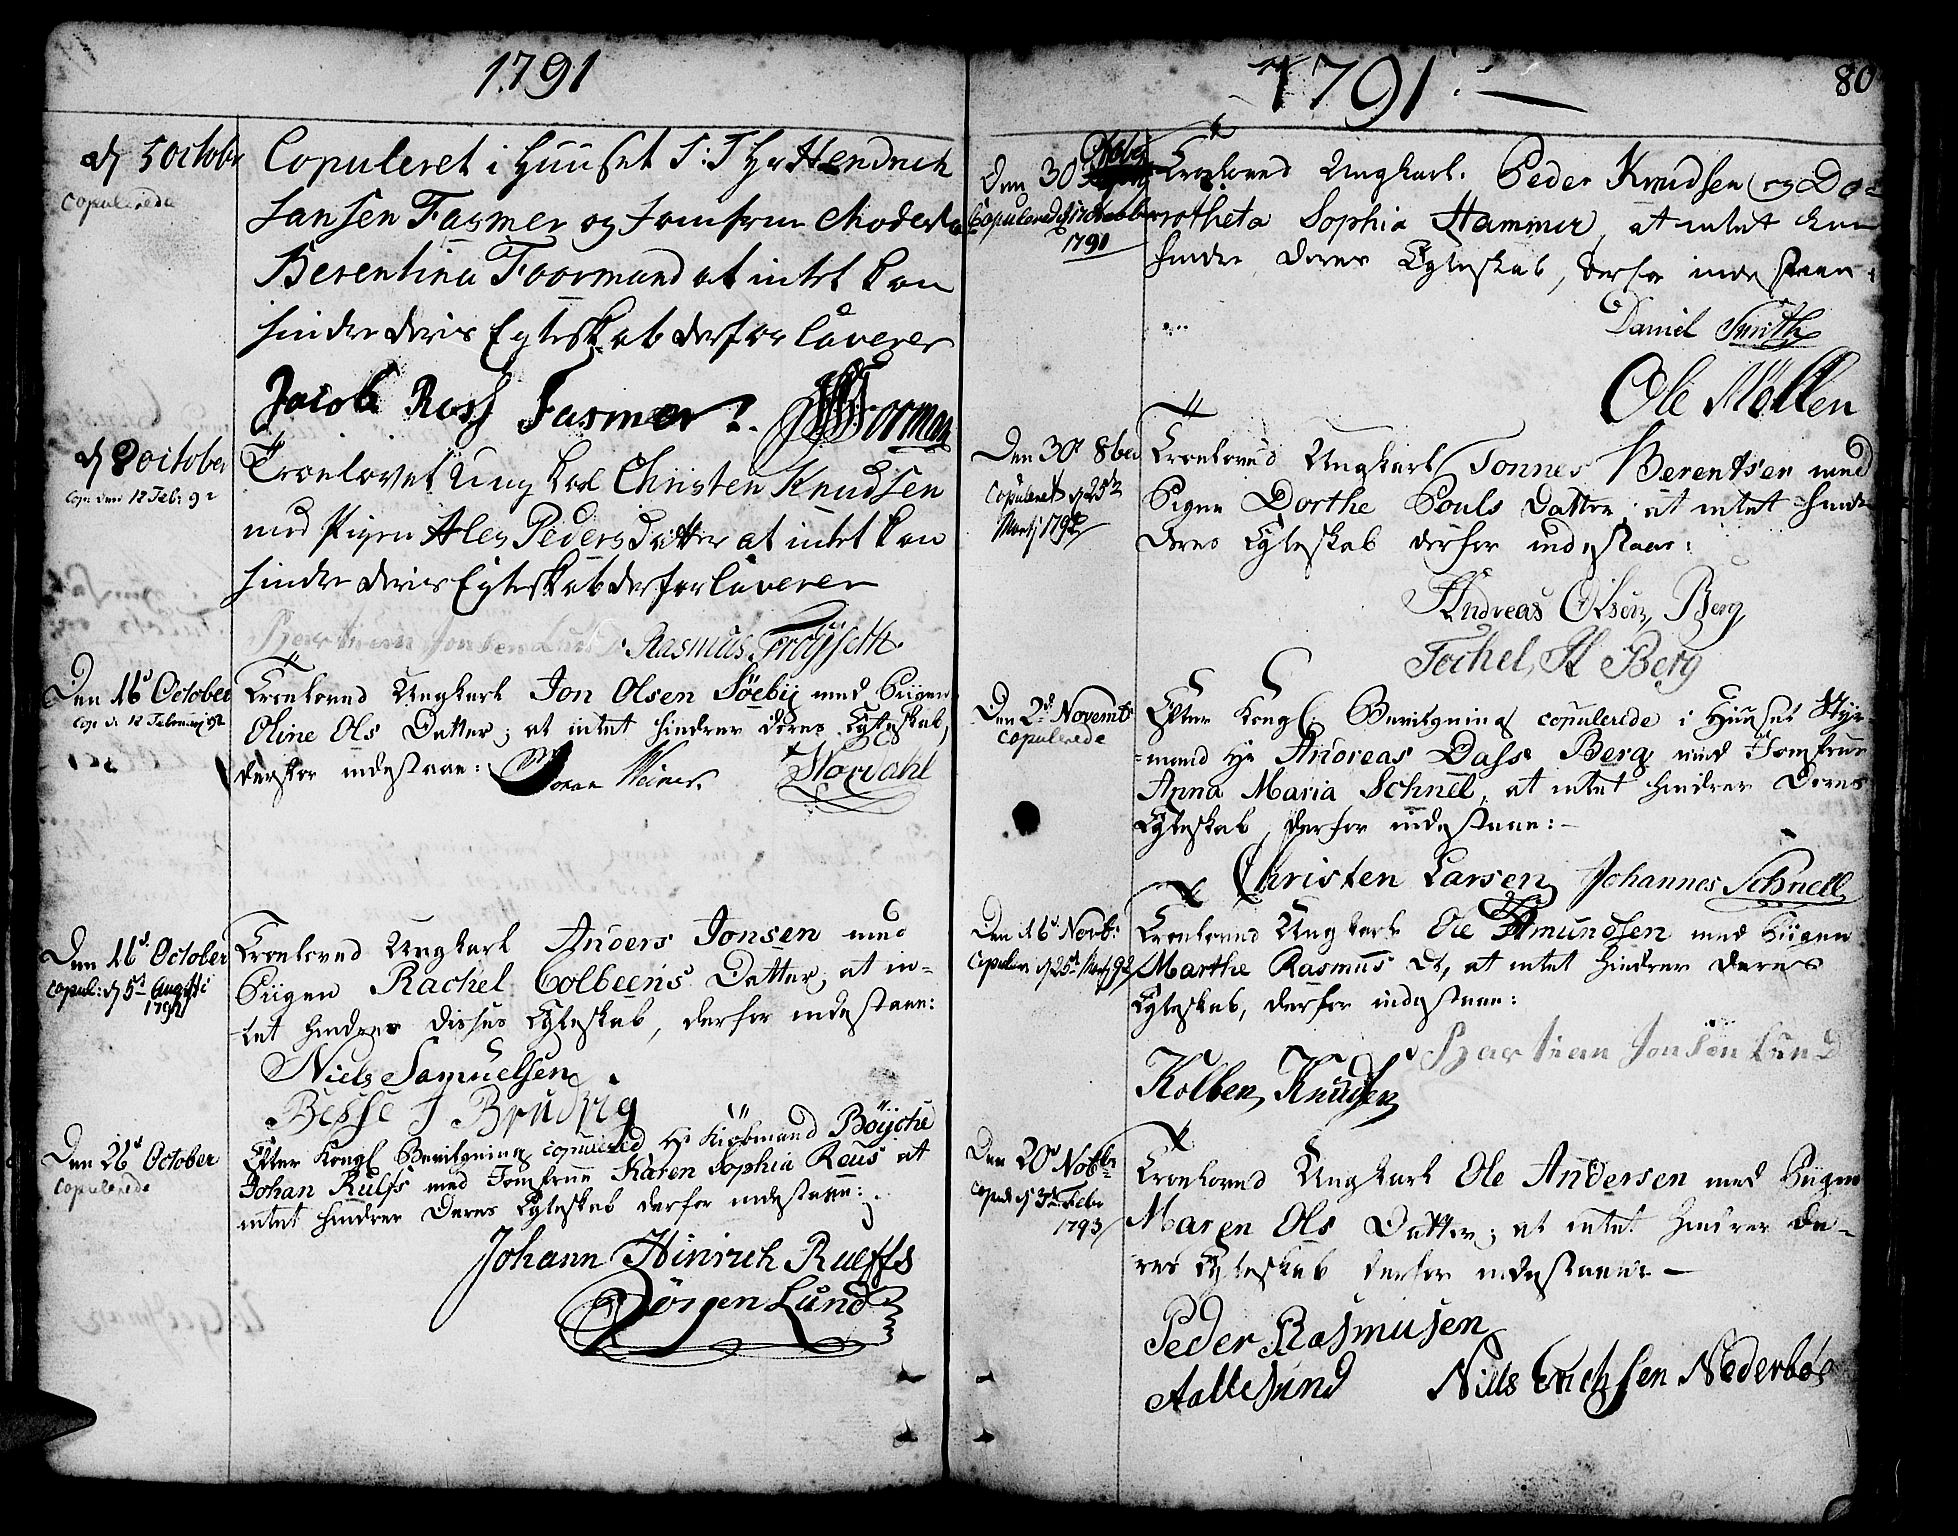 1791
d 5 October
Copulerede
Copuleret i Huuset S: T Hr Hendrich
Jansen Fasmer og Jomfrue Modesta
Berentina Foormand at intet kan
hindre deris Egteskab derfor Caverer
Jacob Fasmer
d 8 October
Cop: den 12 Feb: 92
Troelovet Ung Karl Christen Knudsen
med Pigen Ales Peders Datter at intet kan
hindre deris Egteskab derfor Caverer
Rasmus
Den 16d October
Cop d 12 Februarij 92
Troeloved Ungkarl Jon Olsen Söebÿ med Piigen
Oline Ols Datter; at intet hindrer Deres Egteskab,
derfor indestaae:
Den 16d October
Copul: d 5t Augusti
1792
Troeloved Ungkarl Anders Jonsen med
Piigen Rachel Colbeens Datter, at in-
tet hindrer Disses Egteskab, derfor indestaae:
Niels Samuelsen
Besse J Brudvig
Den 26d October
Copulerede
Efter Kongl Bevilgning copulered Hr Kiøbmand Böÿche
Johan Rulfs med Jomfrue Karen Sophia Reus at
intet hindrer Deres Egteskab derfor indestaae:
Johann Hinrich Rulffs
Jörgen Lund
1791
80
Den 30
Copulered
1791
Troeloved Ungkarl Peder Knudsen og Do-
rotheta Sophia Hammer, at intet kan
hindre Deres Egteskab, derfor indestaae:
Daniel Smith
Ole Möllen
Den 30t 8ber
Copuleret d 25de
Martj 1792
Troeloved Ungkarl Tonnes Berentsen med
Pigen Dorthe Pouls Datter at intet hindr
Deres Egteskab derfor indestaae:
Andreas Olsen Berg
Techel H Berg
Den 2d Novemb:
copulerede
Efter Kongl: Bevilgning copulerede i Huuset Styr-
-mand Hr Andreas Dass Berg med Jomfrue
Anna Maria Schnel, at intet hindrer Deres
Egteskab, derfor indestaae:-
Christen Larsen Johannes Schnell
Den 16d Novb:
Copuler d 25d Martj 92
Troeloved Ungkarl Ole Amundsen med Piigen
Marthe Rasmus Dt, at intet hindrer Deres
Egteskab, derfor indestaae:
Bastian Jonsön Lund
Kolben Knudsen
Den 20d Novbr
Copul: d 3d Febr
1793
Troeloved Ungkarl Ole Andersen med Piigen
Maren Ols Datter; at intet hindrer De-
res Egteskab derfor indestaae: -
Peder Rasmusen
Aallesund Nills Erichsen Nederböe